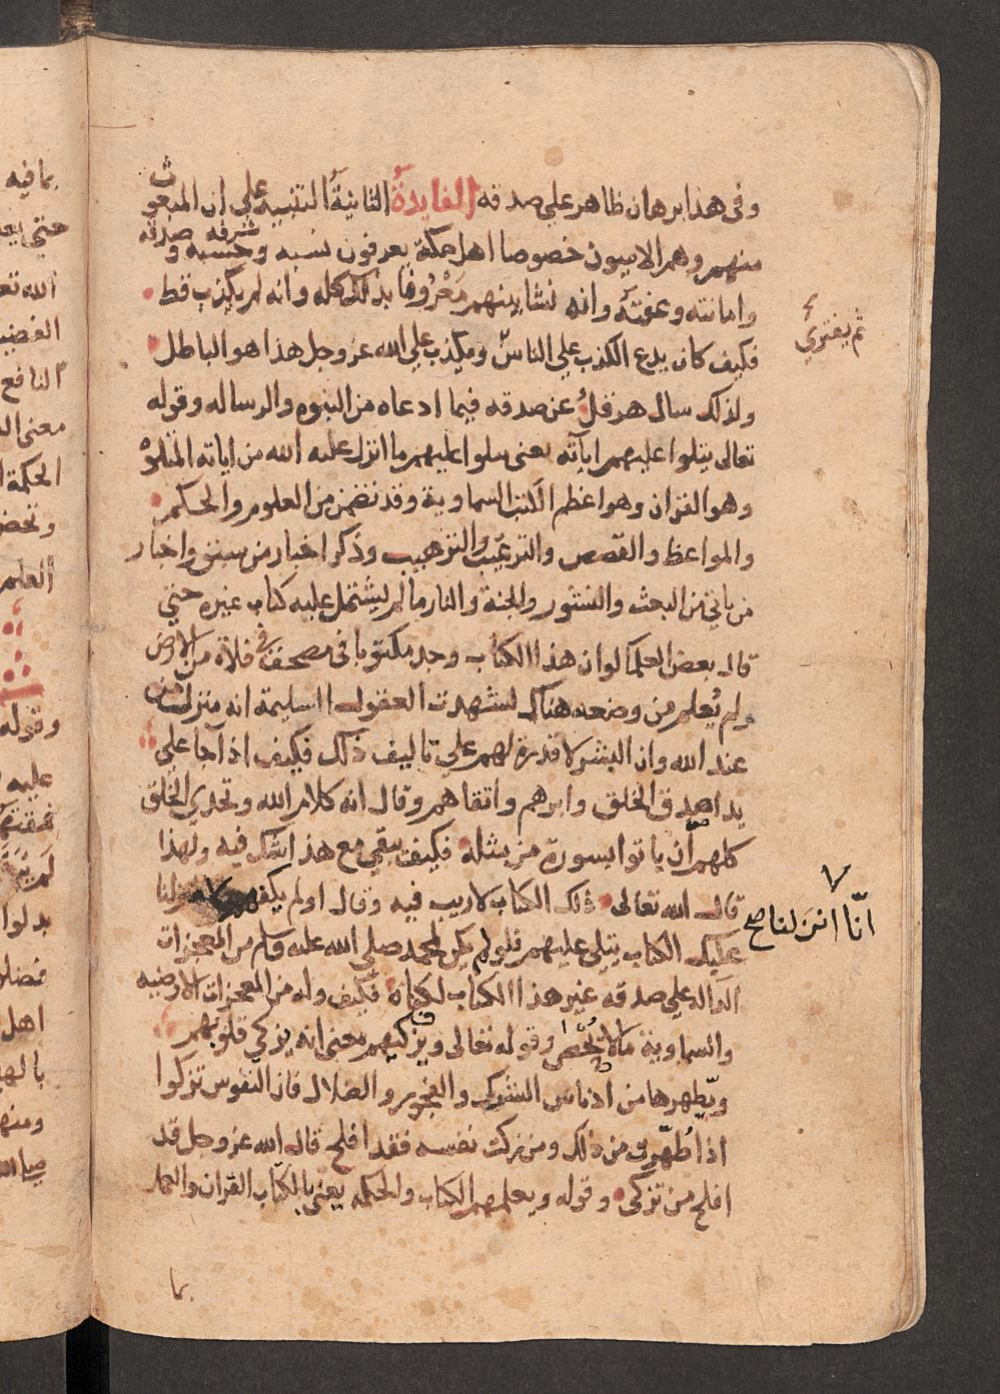 وفى هذا برهان ظاهر علي صدقه الفايدة الثانية التنبيه علي ان المبعوث
منهم وهم الاميون خصوصا اهل مكة يعرفون نسبه وحسبه وشرفه وصدقه
وامانته وعفته وانه نشا بينهم معروفا بذلك كله وانه لم يكذب قط
فكيف كان يدع الكذب علي الناس ويكذب علي الله عز وجل هذا هو الباطل
ولذلك سال هرقل عن صدقه فيما ادعاه من النبوه والرساله وقوله
تعالى يتلوا عليهم اياته يعنى يتلوا عليهم ما انزل عليه الله من اياته المتلوة
وهو القران وهو اعظم الكتب السماوية وقد تضمن من العلوم والحكم
والمواعظ والقصص والترغيب والترهيب وذكر اخبار من سبق واخبار
من ياتي من البعث والنشور والجنة والنار ما لم يشتمل عليه كتاب غيره حتي
قال بعض العلما لو ان هذا الكتاب وجد مكتوبا فى مصحف في فلاة من الارض
ولم يُعلم من وضعه هناك لشهدت العقول السليمة انه منزل من
عند الله وان البشر لا قدرة لهم علي تاليف ذلك فكيف اذا جا علي
يد اصدق الخلق وابرهم واتقاهم وقال انه كلام الله وتحدي الخلق
كلهم ان ياتوا بسورة من مثله فكيف يبقي مع هذا شك فيه ولهذا
قال الله تعالى ذلك الكتاب لا ريب فيه وقال اولم يكفهم انا انزلنا
عليك الكتاب يتلى عليهم فلو لم يكن لمحمد صلي الله عليه وسلم من المعجزات
الدالة علي صدقه غير هذا الكتاب لكفاه فكيف وله من المعجزات الارضيه
والسماوية ما لا يُحصى وقوله تعالى ويزكيهم معنى انه يزكي قلوبهم
ويطهرها من ادناس الشرك والفجور والضلال فان النفوس تزكوا
اذا طُهّرت من ذلك ومن زكت نفسه فقد افلح قال الله عز وجل قد
افلح من تزكى وقوله ويعلمهم الكتاب والحكمه يعنى بالكتاب القران والعمل
بما
ثم يفتري
انّا انزلنا صح
بما فيه